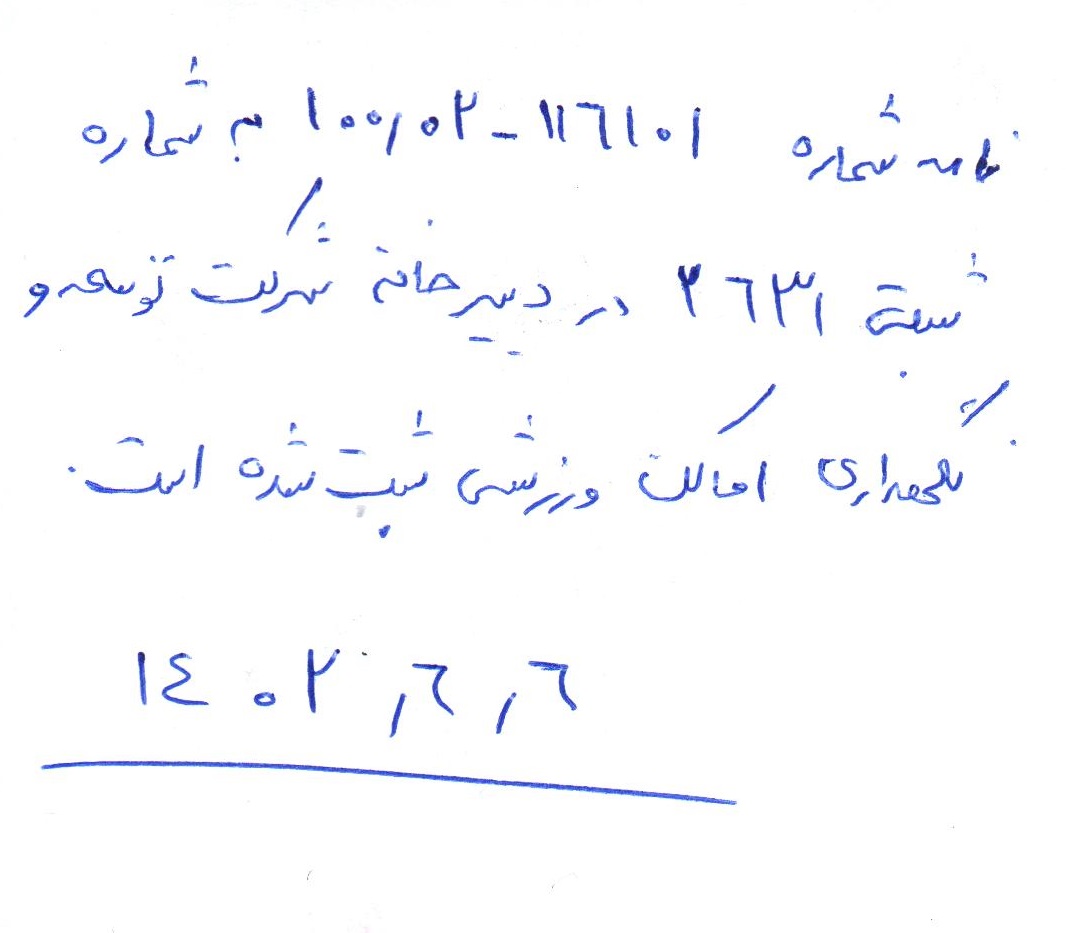 نامه شماره ۱۱۶۱۰۱-۱۰۰/۰۲ به شماره
ثبتی ۳۶۳۱ در دبیرخانه شرکت توسعه و
نگهداری اماکن ورزشی ثبت شده است.
۱۴۰۲/۶/۶